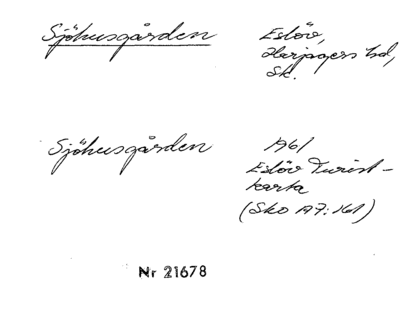 Sjöhusgården
Eslöv,
Harjagers hd,
Sk.
Sjöhusgården
1961
Eslöv Turist-
karta
(Sko A7:161)
Nr 21678